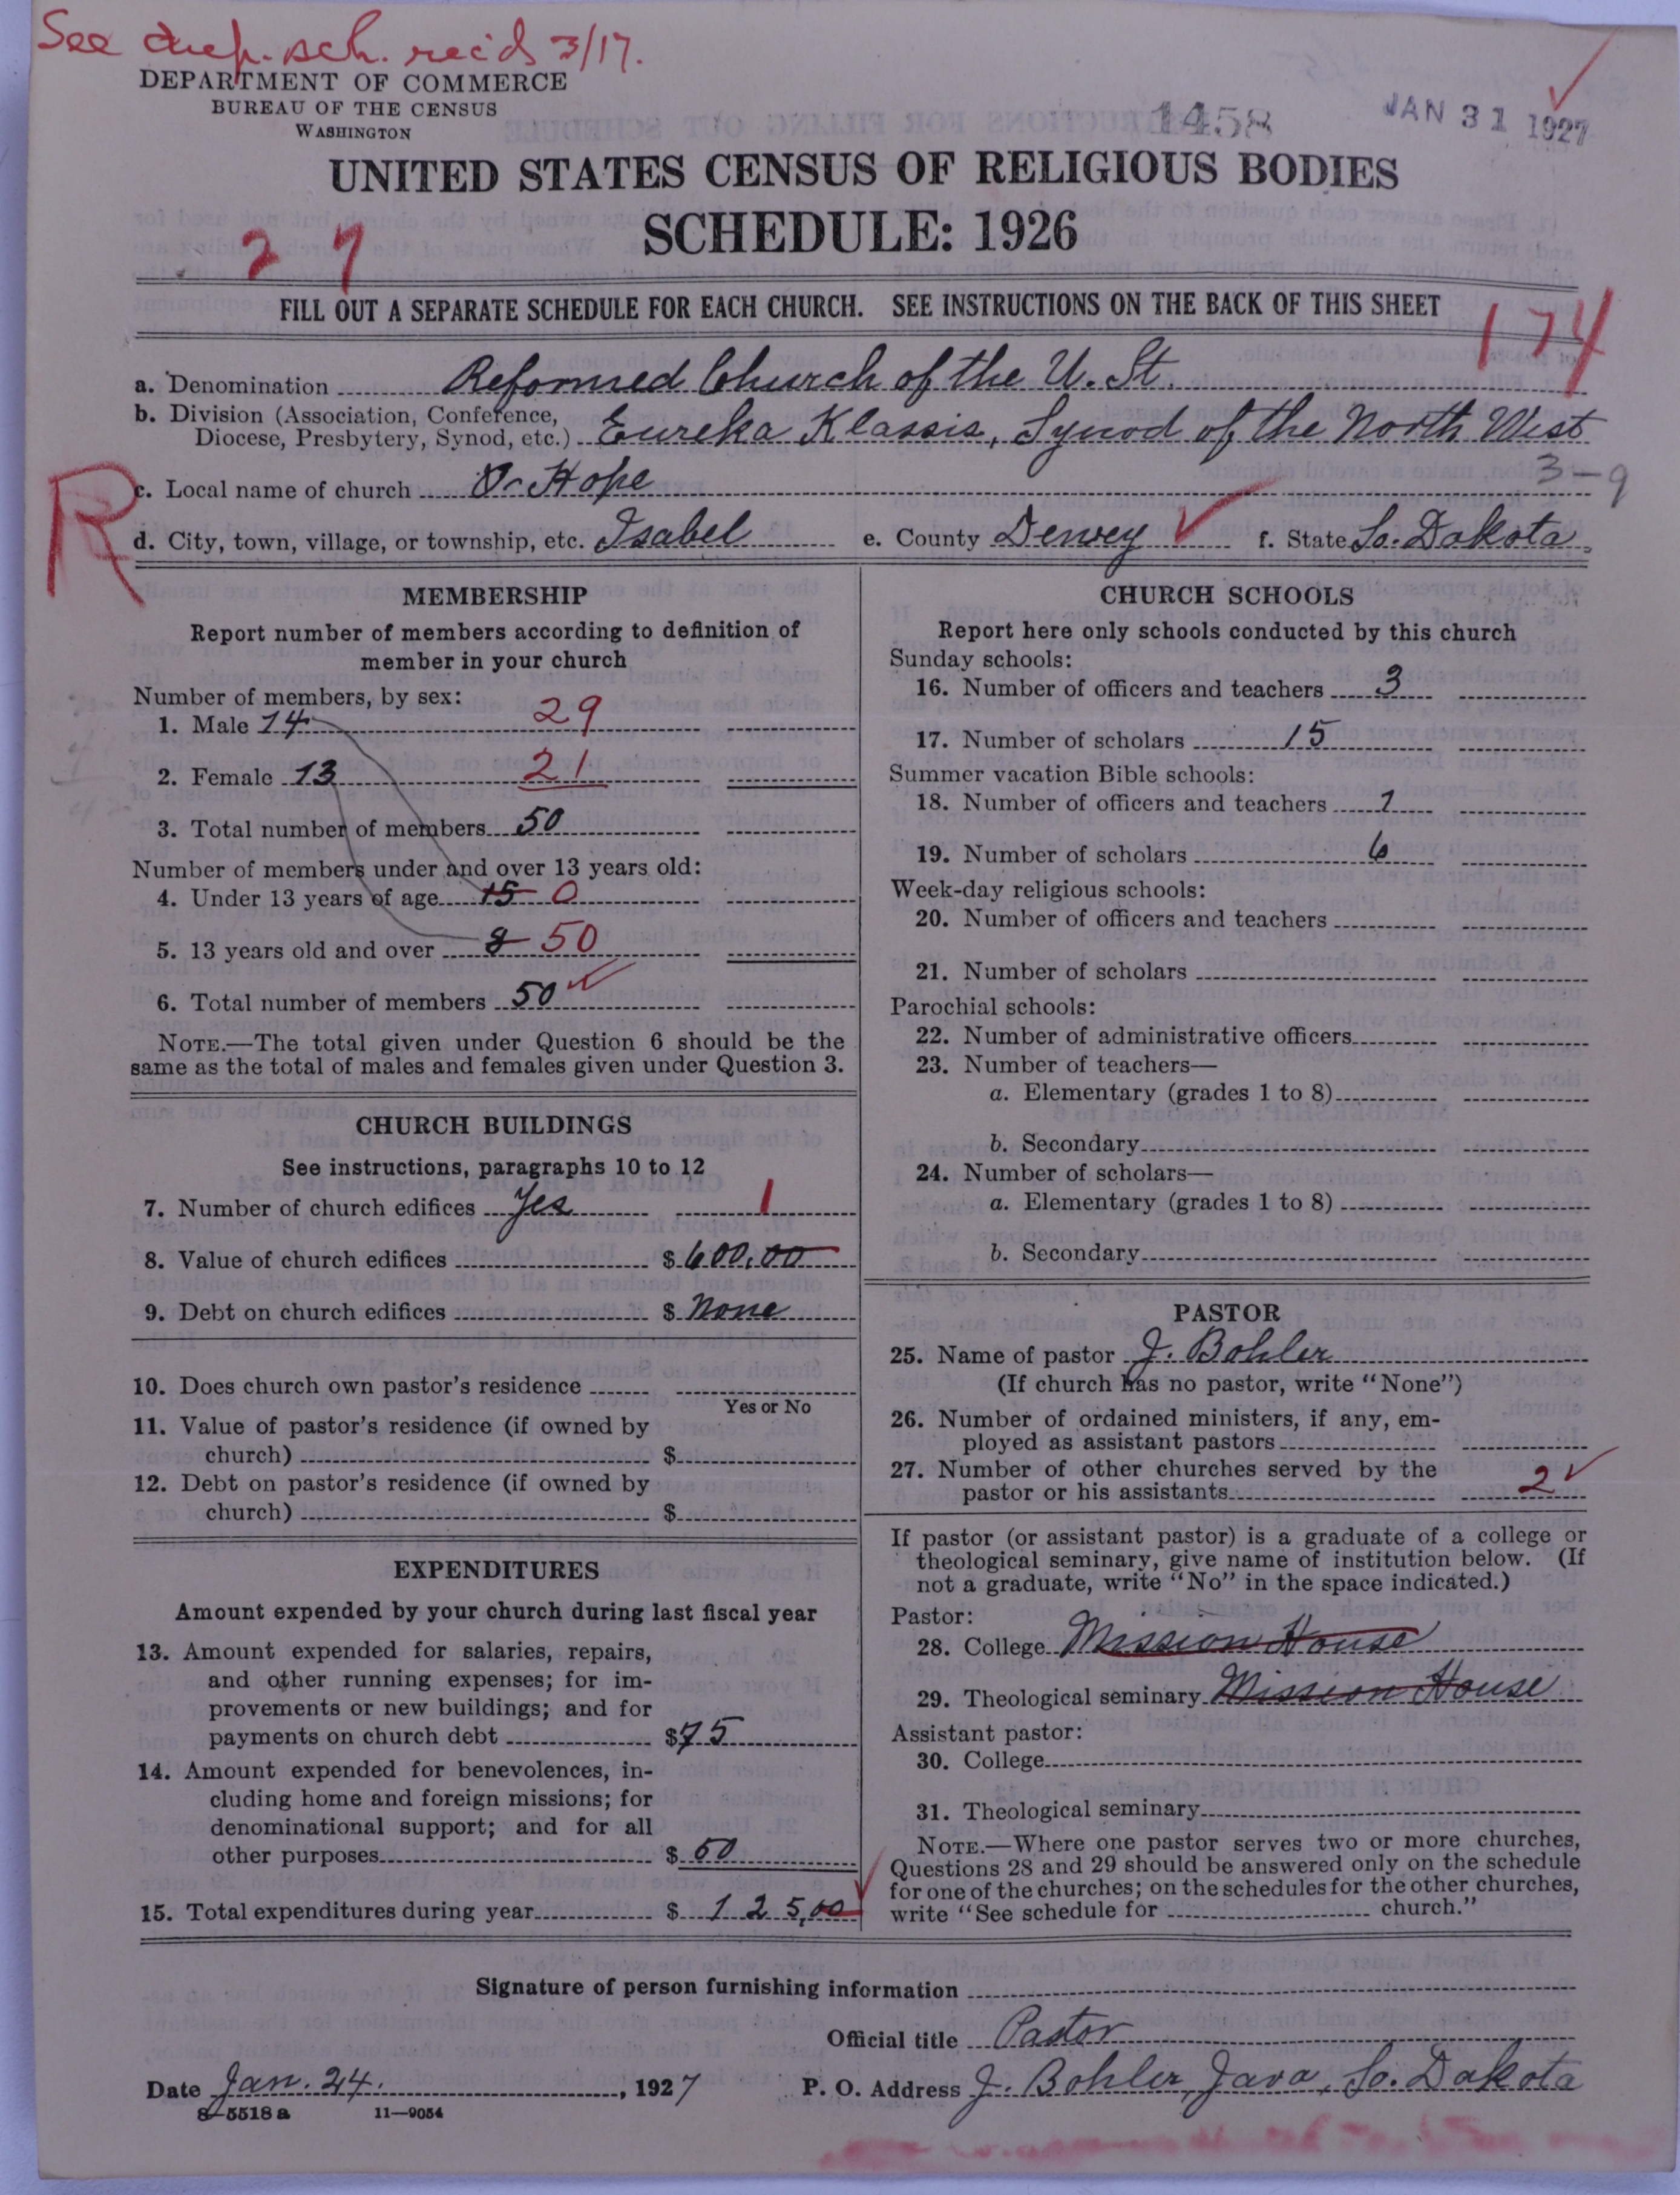 See dup. sch. rec'd 3/17.
DEPARTMENT OF COMMERCE
BUREAU OF THE CENSUS
WASHINGTON
1458
JAN 31 1927
UNITED STATES CENSUS OF RELIGIOUS BODIES
SCHEDULE: 1926
29
FILL OUT A SEPARATE SCHEDULE FOR EACH CHURCH. SEE INSTRUCTIONS ON THE BACK OF THIS SHEET
174
a. Denomination Reformed Church of the U. St.
b. Division (Association, Conference,
Diocese, Presbytery, Synod, etc.) Eureka Klassis, Synod of the North West
3-9
R
c. Local name of church Hope
d. City, town, village, or township, etc. Isabel e. County Dewey f. State So. Dakota
MEMBERSHIP
Report number of members according to definition of
member in your church
Number of members, by sex:
1. Male 14 29
2. Female 13 21
3. Total number of members 50
Number of members under and over 13 years old:
4. Under 13 years of age 15 0
5. 13 years old and over 8 50
6. Total number of members 50
NOTE.—The total given under Question 6 should be the
same as the total of males and females given under Question 3.
CHURCH BUILDINGS
See instructions, paragraphs 10 to 12
7. Number of church edifices Yes 1
8. Value of church edifices $ 600.00
9. Debt on church edifices $ None
10. Does church own pastor's residence
Yes or No
11. Value of pastor's residence (if owned by
church) $
12. Debt on pastor's residence (if owned by
church) $
EXPENDITURES
Amount expended by your church during last fiscal year
13. Amount expended for salaries, repairs,
and other running expenses; for im-
provements or new buildings; and for
payments on church debt $75
14. Amount expended for benevolences, in-
cluding home and foreign missions; for
denominational support; and for all
other purposes $ 50
15. Total expenditures during year $ 125,00
CHURCH SCHOOLS
Report here only schools conducted by this church
Sunday schools:
16. Number of officers and teachers 3
17. Number of scholars 15
Summer vacation Bible schools:
18. Number of officers and teachers 1
19. Number of scholars 6
Week-day religious schools:
20. Number of officers and teachers
21. Number of scholars
Parochial schools:
22. Number of administrative officers
23. Number of teachers—
a. Elementary (grades 1 to 8)
b. Secondary
24. Number of scholars—
a. Elementary (grades 1 to 8)
b. Secondary
PASTOR
25. Name of pastor J. Bohler
(If church has no pastor, write "None")
26. Number of ordained ministers, if any, em-
ployed as assistant pastors
27. Number of other churches served by the
pastor or his assistants 2
If pastor (or assistant pastor) is a graduate of a college or
theological seminary, give name of institution below. (If
not a graduate, write "No" in the space indicated.)
Pastor:
28. College Mission House
29. Theological seminary Mission House
Assistant pastor:
30. College
31. Theological seminary
NOTE.—Where one pastor serves two or more churches,
Questions 28 and 29 should be answered only on the schedule
for one of the churches; on the schedules for the other churches,
write "See schedule for church."
Signature of person furnishing information
Official title Pastor
Date Jan. 24. , 1927 P. O. Address J. Bohler, Java, So. Dakota
8-5518 a 11—9054